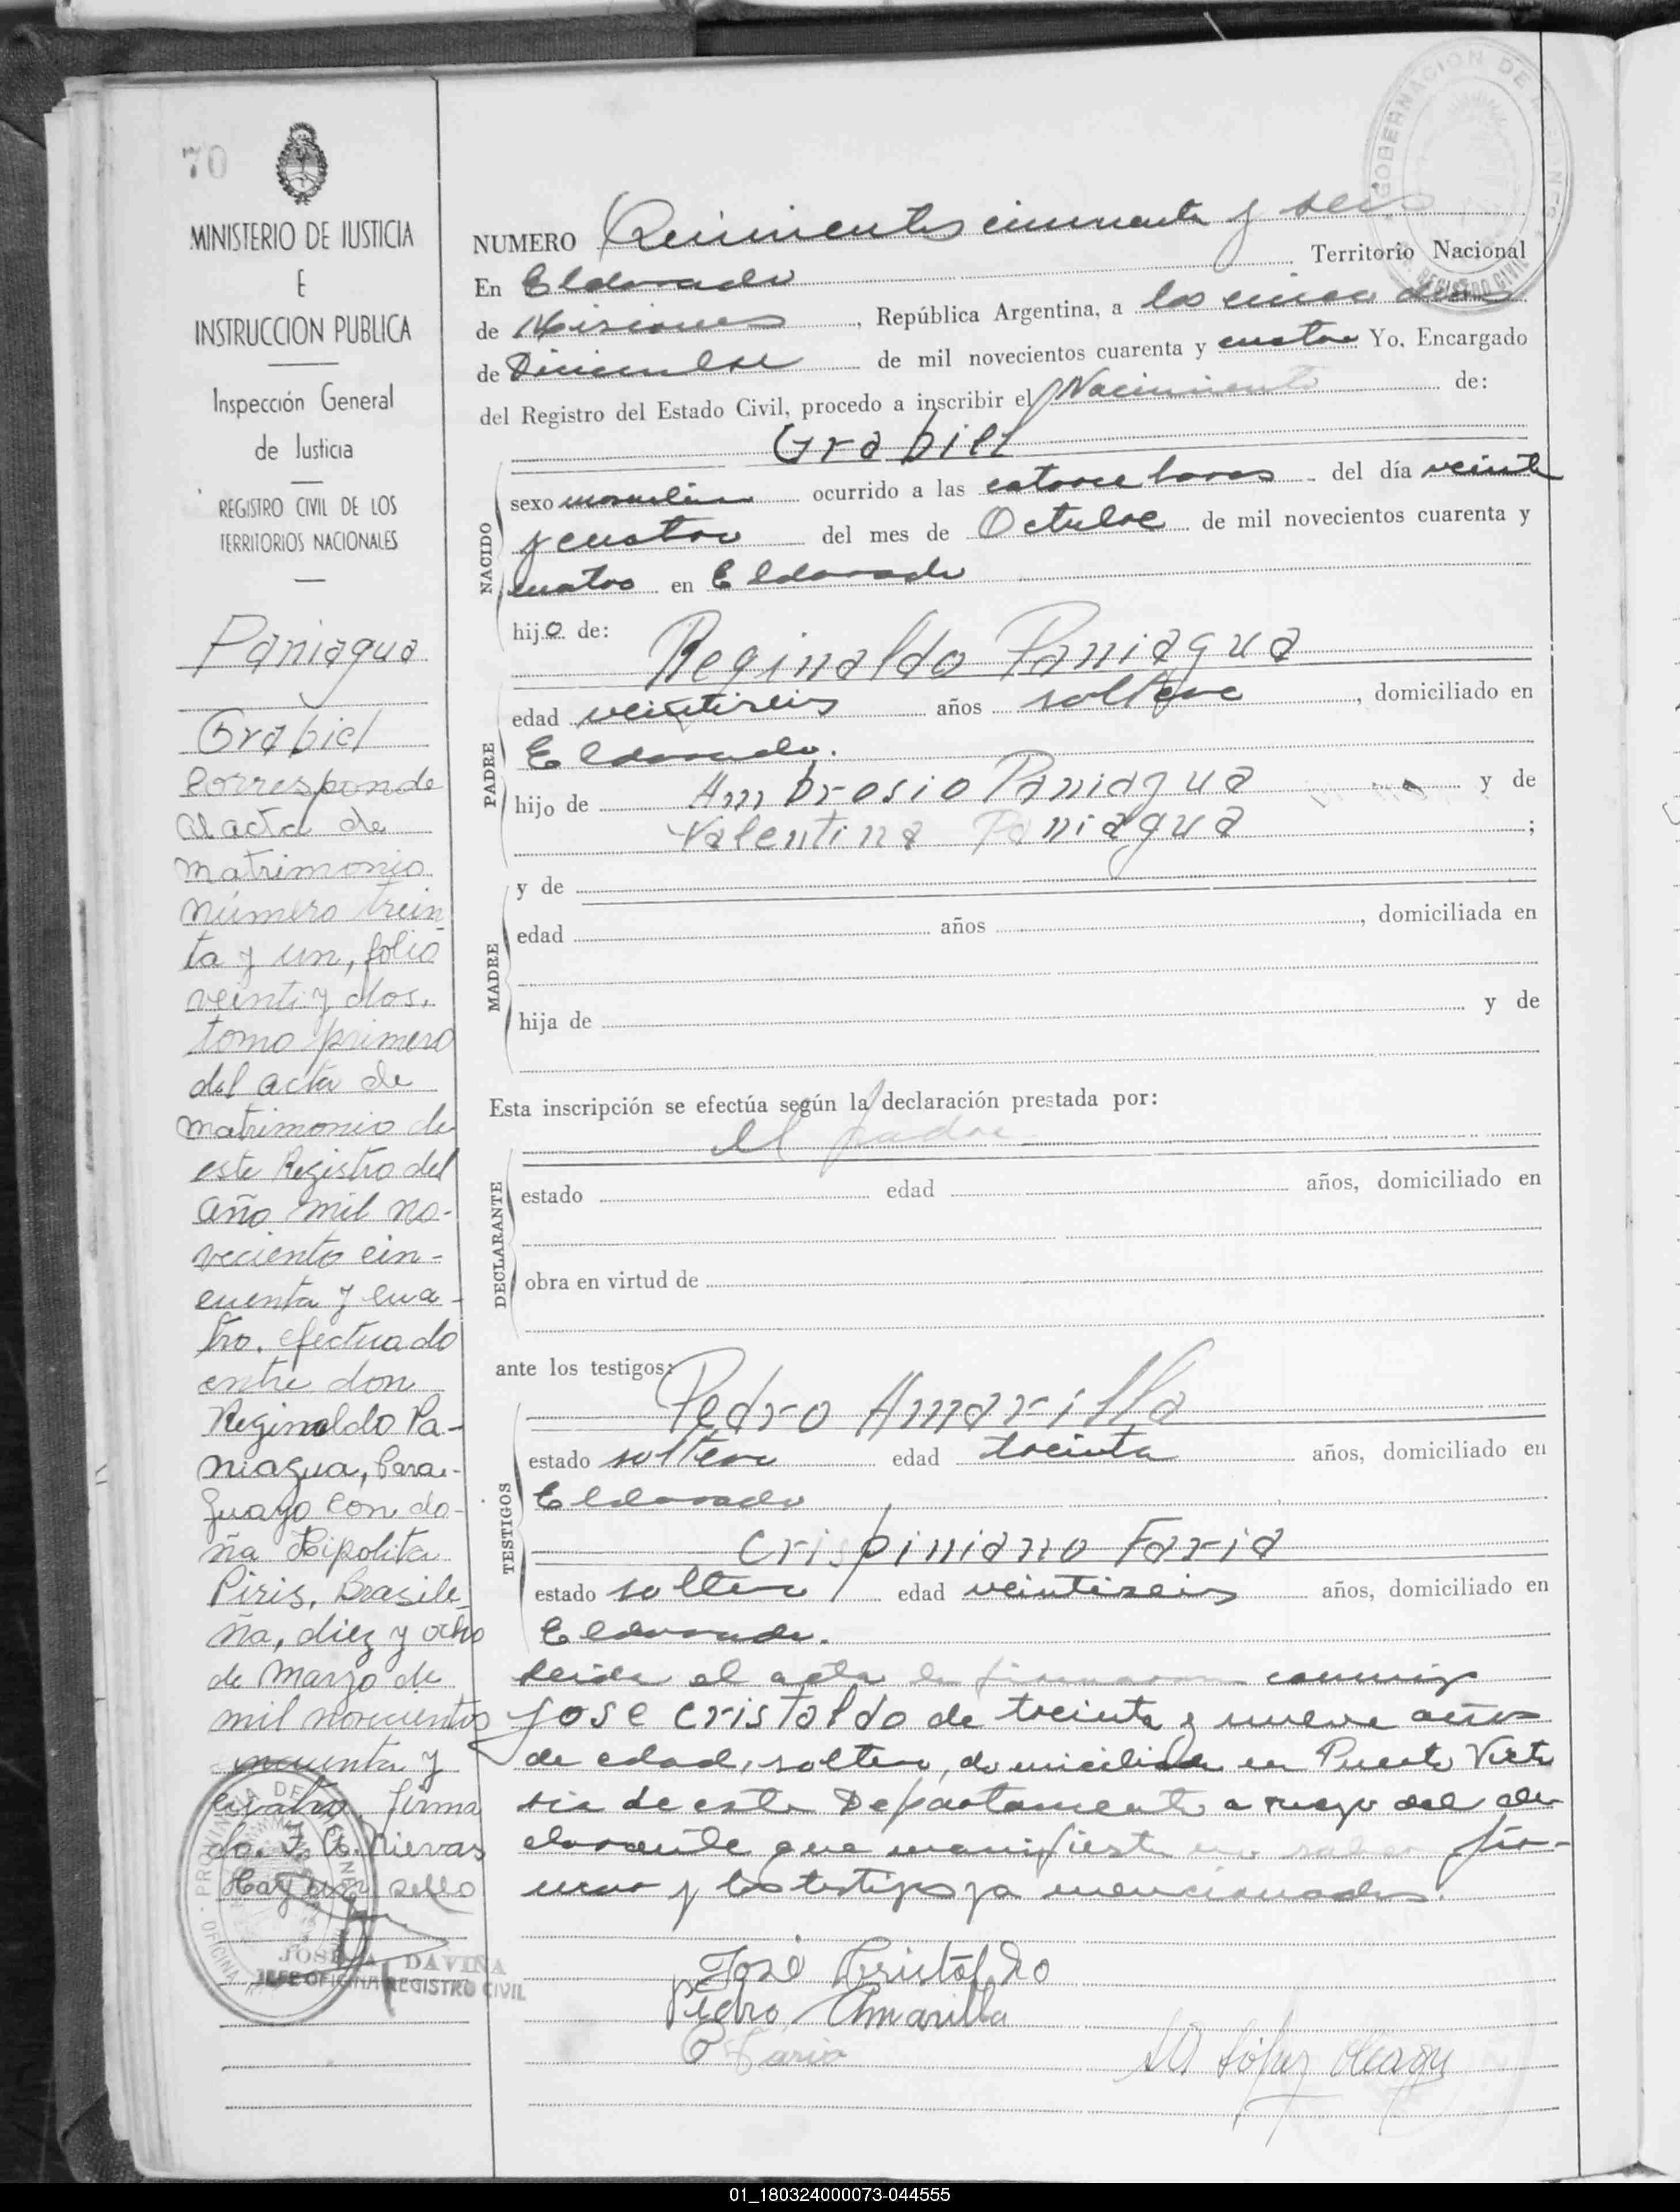 70
MINISTERIO DE JUSTICIA
E
INSTRUCCION PUBLICA
Inspección General
de Justicia
REGISTRO CIVIL DE LOS
TERRITORIOS NACIONALES
Paniagua
Grabiel
Corresponde
al acta de
matrimonio
número trein
ta y un, folio
veinti y dos,
tomo primero
del acta de
matrimonio de
este Registro del
año mil no-
veciento cin-
cuenta y cua-
tro. efectuado
entre don
Reginaldo Pa-
niagua, Para-
guayo con do-
ña Hipolita
Piris, Brasile-
ña, diez y ocho
de Marzo de
mil novecientos
cincuenta y
cuatro. firma
do. J. A. Nievas
Hay un sello
PROVINCIA DE MISIONES
OFICINA
JOSE A DAVIÑA
JEFE OFICINA REGISTRO CIVIL
GOBERNACION DE MISIONES
REGISTRO CIVIL
NUMERO Quinientos cincuenta y seis
En Eldorado Territorio Nacional
de Misiones, República Argentina, a los cinco dias
de Diciembre de mil novecientos cuarenta y cuatro Yo, Encargado
del Registro del Estado Civil, procedo a inscribir el Nacimiento de:
Grabiel
NACIDO
sexo masculino ocurrido a las catorce horas del día veinte
y cuatro del mes de Octubre de mil novecientos cuarenta y
cuatro en Eldorado
hijo de:
Reginaldo Paniagua
PADRE
edad veintiseis años soltero, domiciliado en
Eldorado.
hijo de Ambrosio Paniagua y de
Valentina Paniagua;
MADRE
y de
edad años, domiciliada en
hija de y de
Esta inscripción se efectúa según la declaración prestada por:
el padre
DECLARANTE
estado edad años, domiciliado en
obra en virtud de
ante los testigos:
Pedro Amarilla
TESTIGOS
estado soltero edad treinta años, domiciliado en
Eldorado
Crispiniano Faria
estado soltero edad veintiseis años, domiciliado en
Eldorado.
leida el acta la firmaron conmigo
Jose Cristaldo de treinta y nueve años
de edad, soltero, domiciliado en Puerto Victo
ria de este Departamento a ruego del de
clarante que manifiesta no saber fir-
mar y los testigos ya mencionados.
José Cristaldo
Pedro Amarilla
C Faria
López
01_180324000073-044555